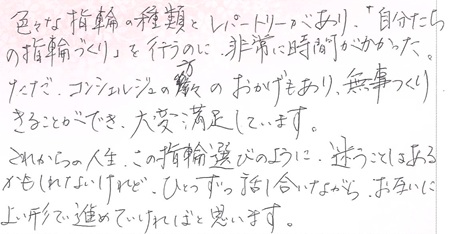 色々な指輪の種類とレパートリーがあり、「自分たち
の指輪づくり」を行うのに、非常に時間がかかった。
ただ、コンシェルジュの方のおかげもあり、無事つくり
きることができ、大変満足しています。
これからの人生、この指輪選びのように、迷うことはある
かもしれないけれど、ひとつずつ話し合いながら、お互いに
よい形で進めていければと思います。